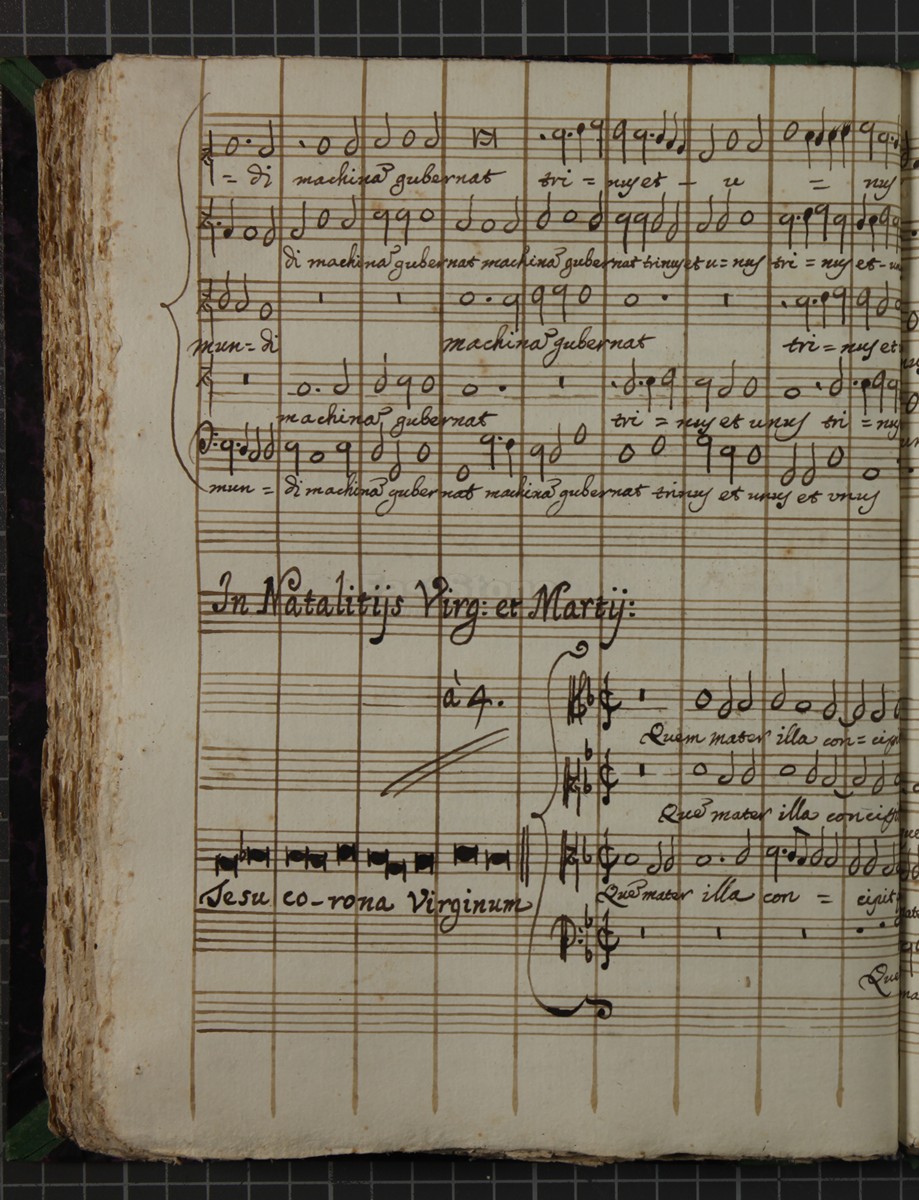 = di machinã gubernat tri = nus et - u = nus
di machinã gubernat machinã gubernat trinus et u = nus tri = nus et - u
mun = di machinã gubernat tri = nus et
machinã gubernat tri = nus et unus tri = nus
mun = di machinã gubernat machinã gubernat trinus et unus et vnus
In Natalitijs Virg: et Martij:
à 4.
Quem mater illa con = cipi
Quẽ mater illa concipi
Jesu co-rona Virginum
Quẽ mater illa con = cipit
Que